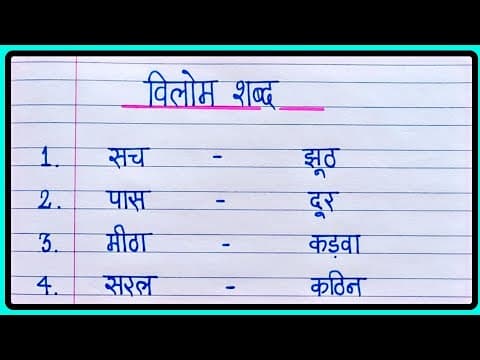 विलोम शब्द
1. सच - झूठ
2. पास - दूर
3. मीठा - कड़वा
4. सरल - कठिन